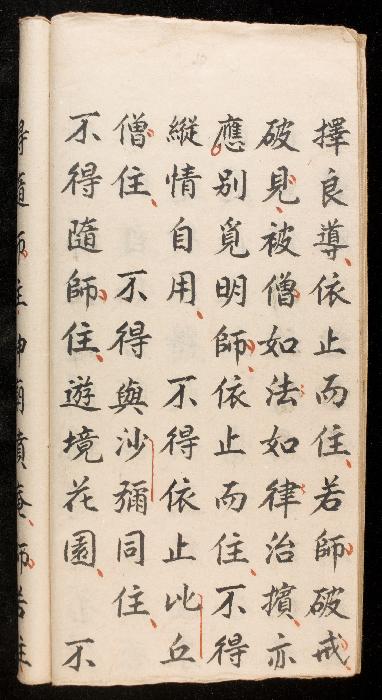 擇良導、依止而住、若師破戒
破見、被僧如法如律治擯、亦
應別覓明師、依止而住、不得
縱情自用、 不得依止比丘
僧住、 不得與沙彌同住、
不得隨師住、遊境花園、 不